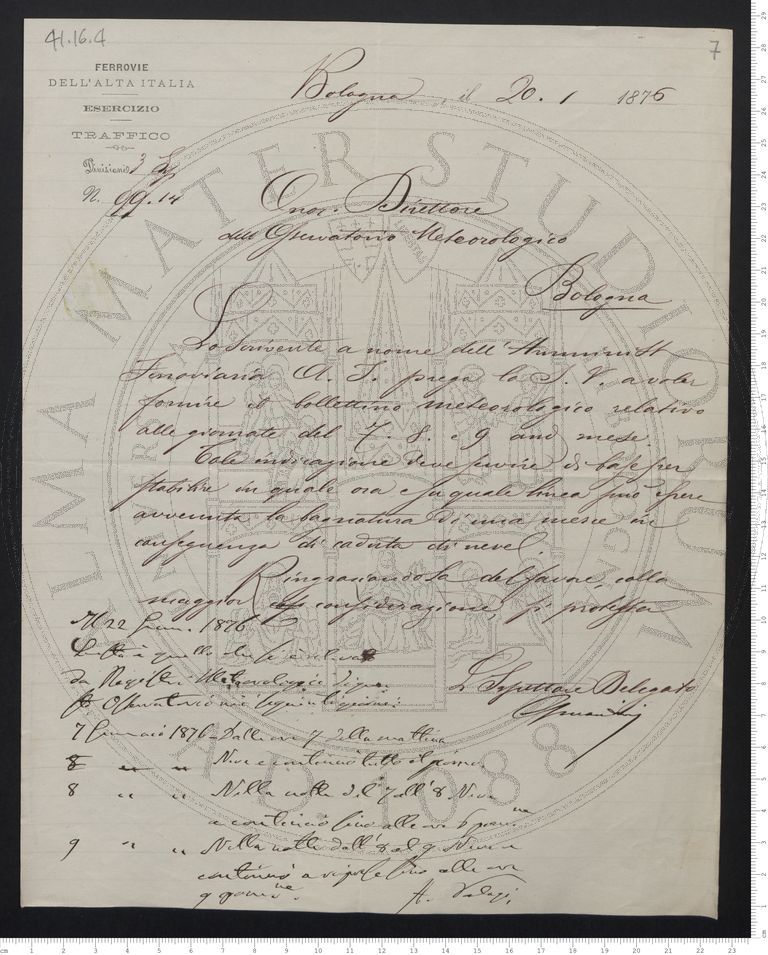 41.16.4
7
FERROVIE
DELL'ALTA ITALIA
ESERCIZIO
TRAFFICO
Divisione 3
N. 99.14
Bologna, il 20. 1 1876
Onor. Direttore
dell'Osservatorio Meteorologico
Bologna
Lo scrivente a nome dell'Amminist
Ferroviaria A. I. prega la S. V. a voler
fornire il bollettino meteorologico relativo
alle giornate del 7. 8. e 9 and mese.
Tale indicazione deve servire di base per
stabilire in quale ora e su quale linea può essere
avvenuta la bagnatura di una merce in
conseguenza di caduta di neve.
Ringraziandola del favore, colla
maggior considerazione, si protesta
Il 22 Genn. 1876
da Registri Meteorologici
Osservatorio
L'Ispettore Delegato
7 Gennaio 1876 Dalle ore 7 della mattina
8 " " Neve continuò tutto il giorno.
8 " " Nella notte del 7 all'8 Neve
e continuò fino alle ore 6 pom.ne
9 " " Nella notte dall'8 al 9 Neve e
continuò a riprese fino alle ore
9 pom.ne
ALMA MATER STUDIORUM
A.D. 1088